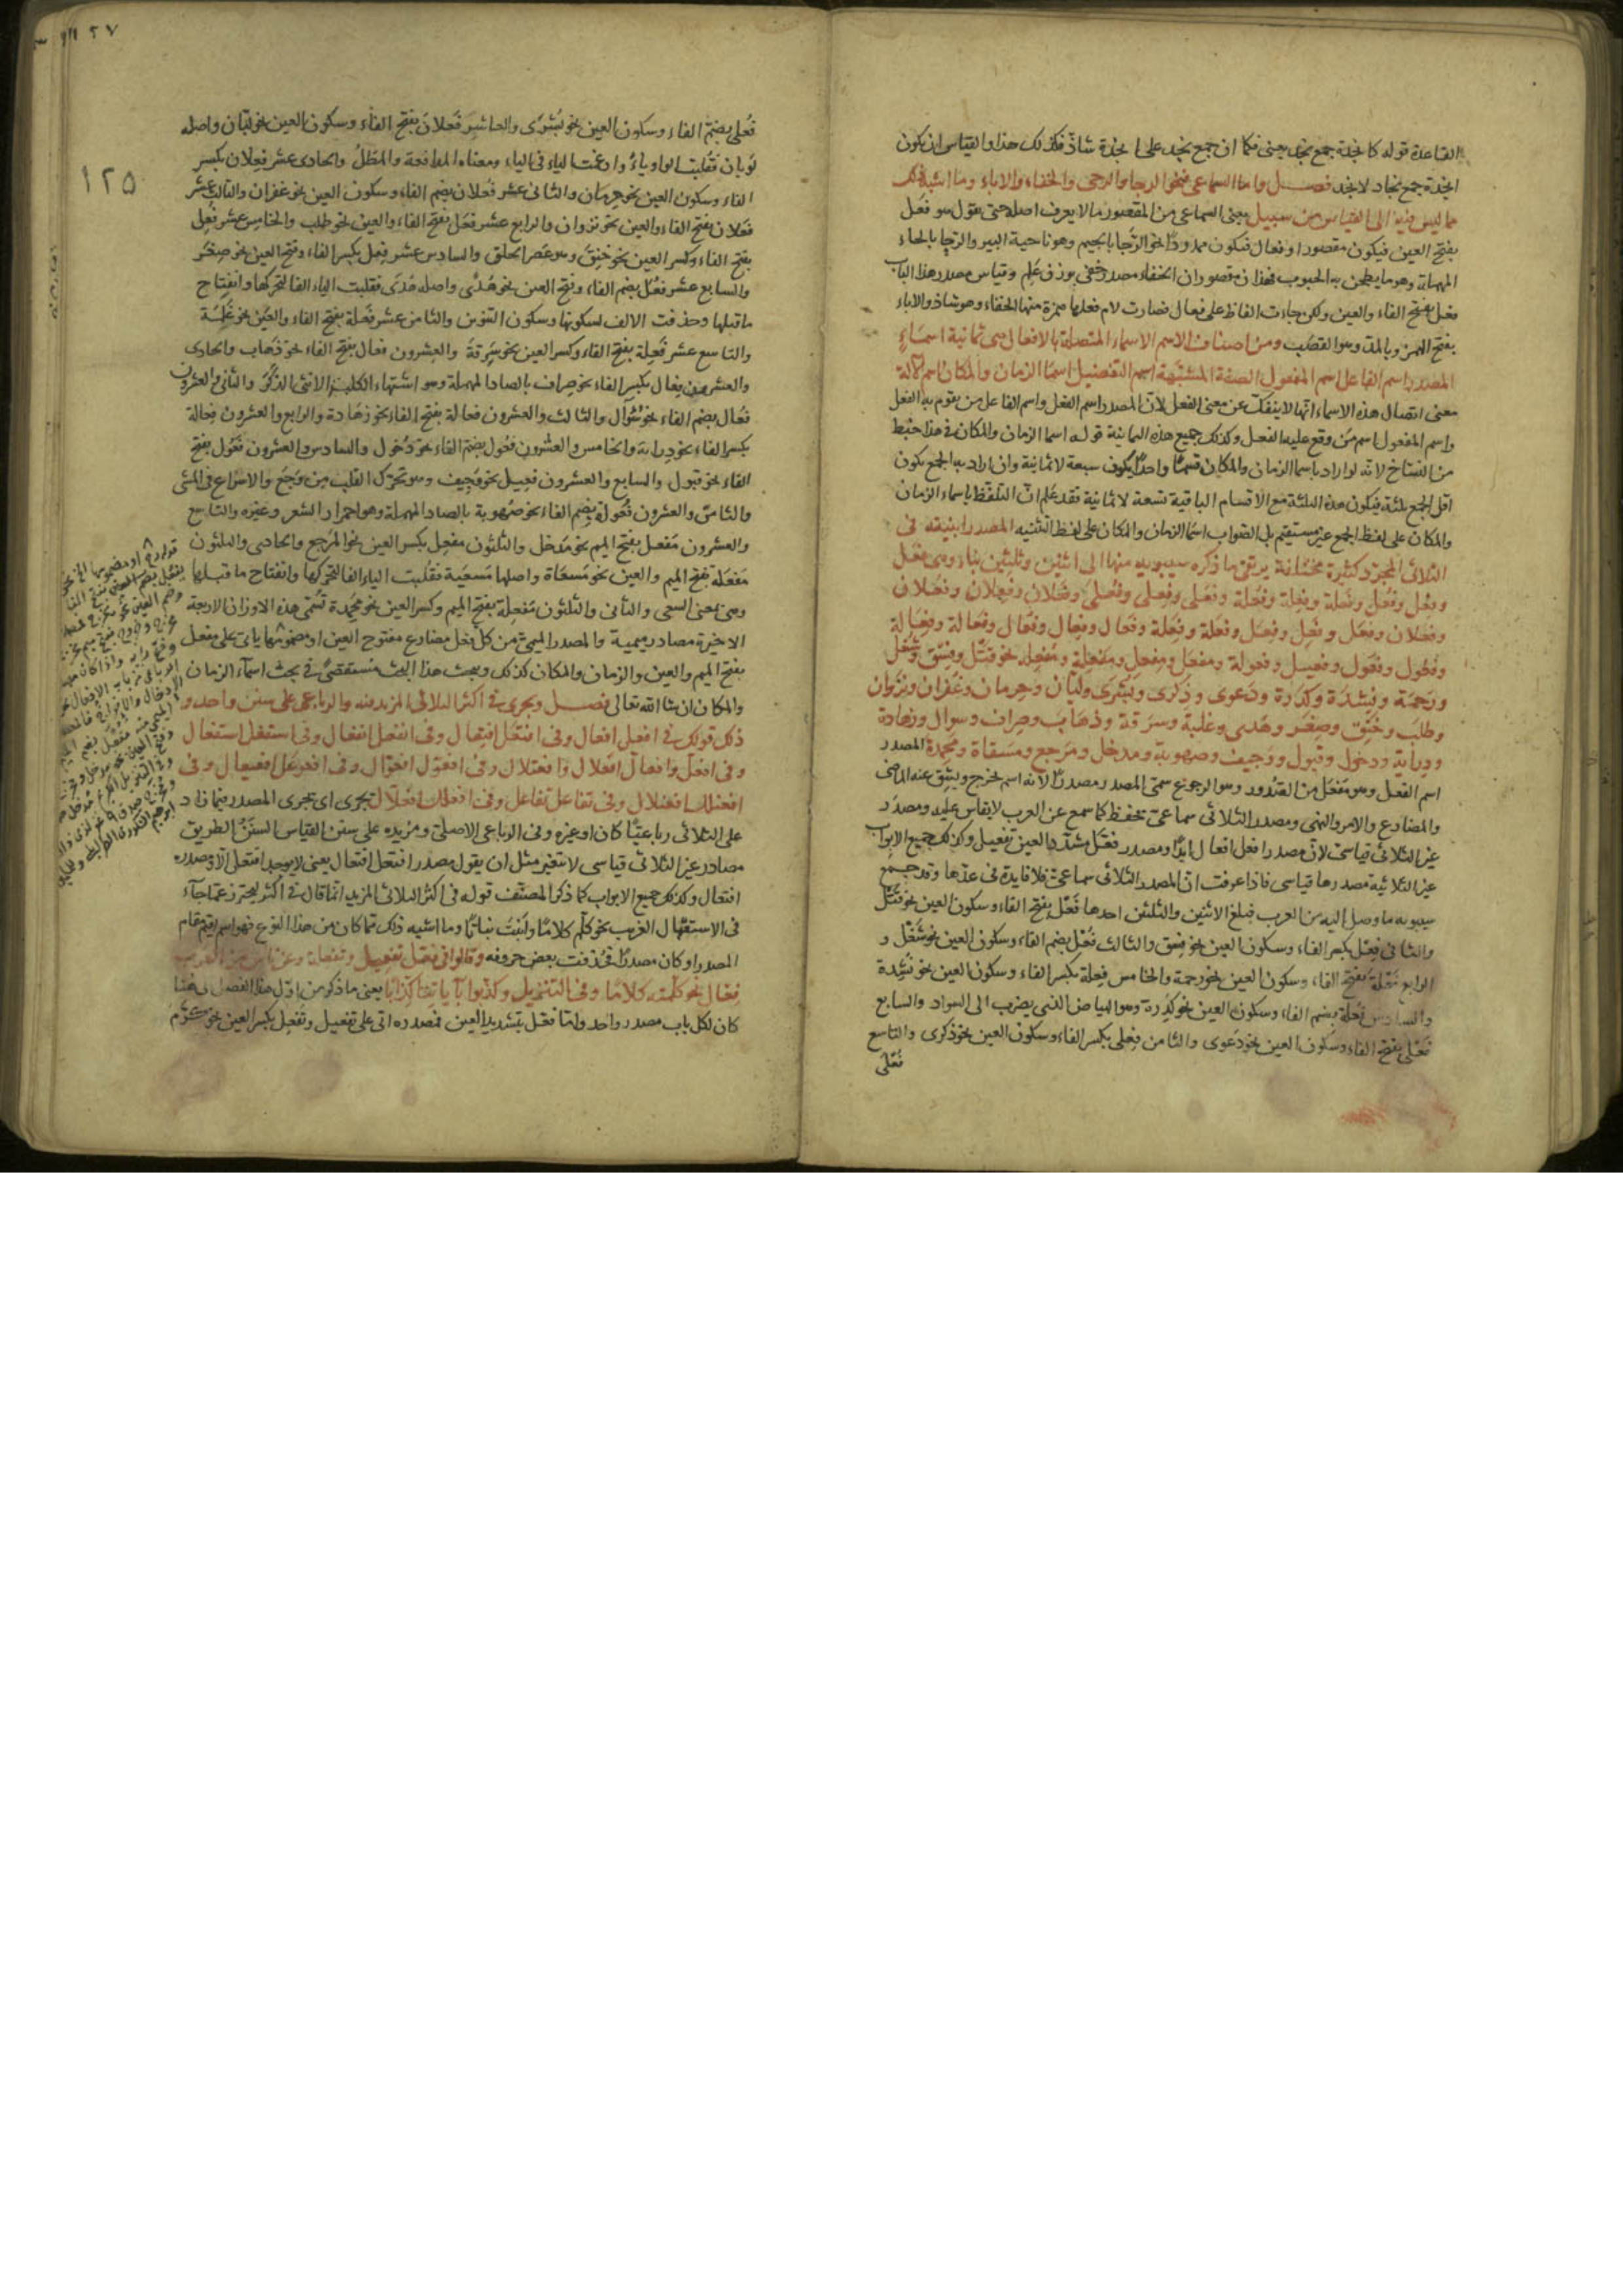 القاعدة قوله كانجدة جمع نجد يعنى فكما ان جمع نجد على انجدة شاذ فكذلك هذا والقياس ان يكون
انجدة جمع نجاد لا نجد فصل واما السماعى فنحو الرجا والرحى والخفاء والاباء وما اشبه ذلك
مما ليس فيه الى القياس من سبيل يعنى السماعى من المقصور ما لا يعرف اصله حتى يقول هو فعل
بفتح العين فيكون مقصورا او فعال فيكون ممدودا نحو الرجا بالجيم وهو ناحية البير والرحا بالحاء
المهملة وهو ما يطحن به الحبوب فهذان مقصوران الخفاء مصدر خفى بوزن علم وقياس مصدر هذا الباب
فعل بفتح الفاء والعين ولكن جاءت الفاظ على فعال فصارت لام فعلها همزة منها الخفاء وهو شاذ والاباء
بفتح الهمز وبالمد وهو القصب ومن اصناف الاسم الاسماء المتصلة بالافعال هى ثمانية اسماء
المصدر اسم الفاعل اسم المفعول الصفة المشبهة اسم التفضيل اسما الزمان والمكان اسم الآلة
معنى اتصال هذه الاسماء انها لا ينفك عن معنى الفعل لان المصدر اسم الفعل واسم الفاعل من يقوم به الفعل
واسم المفعول اسم من وقع عليه الفعل وكذلك جميع هذه الثمانية قوله اسما الزمان والمكان فى هذا خبط
من النساخ لانه لو اراد باسما الزمان والمكان قسما واحدا يكون سبعة لا ثمانية وان اراد به الجمع يكون
اقل الجمع ثلثة فيكون هذه الثلثة مع الاقسام الباقية تسعة لا ثمانية فقد علم ان التلفظ باسماء الزمان
والمكان على لفظ الجمع غير مستقيم بل الصواب اسما الزمان والمكان على لفظ التثنيه المصدر ابنيته فى
الثلاثى المجرد كثيرة مختلفة يرتقى ما ذكره سيبويه منها الى اثنين وثلثين بناء وهى فعل
وفعل وفعل وفعلة وفعلة وفعلة وفعلى وفعلى وفعلى وفعلان وفعلان وفعلان
وفعلان وفعل وفعل وفعل وفعلة وفعلة وفعال وفعال وفعال وفعالة وفعالة
وفعول وفعول وفعيل وفعولة ومفعل ومفعل ومفعلة ومفعلة نحو قتل وفسق وشغل
ورحمة ونشدة وكدرة ودعوى وذكرى وبشرى وليان وحرمان وغفران ونزوان
وطلب وخنق وصغر وهدى وغلبة وسرقة وذهاب وصراف وسوال وزهادة
ودراية ودخول وقبول ووجيف وصهوبة ومدخل ومرجع ومسعاة ومحمدة المصدر
اسم الفعل وهو مفعل من الصدور وهو الرجوع سمى المصدر مصدرا لانه اسم يخرج ويشتق عنه الماضى
والمضارع والامر والنهى ومصدر الثلاثى سماعى تحفظ كما سمع عن العرب لا يقاس عليه ومصدر
غير الثلاثى قياسى لان مصدر افعل افعال ابدا ومصدر فعل مشدد العين تفعيل وكذلك جميع الابواب
غير الثلاثية مصدرها قياسى فاذا عرفت ان المصدر الثلاثى سماعى فلا فايدة فى عدها وقد جمع
سيبويه ما وصل اليه من العرب فبلغ الاثنين والثلثين احدها فعل بفتح الفاء وسكون العين نحو قتل
والثانى فعل بكسر الفاء وسكون العين نحو فسق والثالث فعل بضم الفاء وسكون العين نحو شغل و
الرابع فعلة بفتح الفاء وسكون العين نحو رحمة والخامس فعلة بكسر الفاء وسكون العين نحو نشدة
والسادس فعلة بضم الفاء وسكون العين نحو كدرة وهو البياض الذى يضرب الى السواد والسابع
فعلى بفتح الفاء وسكون العين نحو دعوى والثامن فعلى بكسر الفاء وسكون العين نحو ذكرى والتاسع
فعلى
٢٧
١٢٥
فعلى بضم الفاء وسكون العين نحو بشرى والعاشر فعلان بفتح الفاء وسكون العين نحو ليان واصله
لويان فقلبت الواو ياء وادغمت الياء فى الياء ومعناه المدافعة والمطل والحادى عشر فعلان بكسر
الفاء وسكون العين نحو حرمان والثانى عشر فعلان بضم الفاء وسكون العين نحو غفران والثالث عشر
فعلان بفتح الفاء والعين نحو نزوان والرابع عشر فعل بفتح الفاء والعين نحو طلب والخامس عشر فعل
بفتح الفاء وكسر العين نحو خنق وهو عصر الحلق والسادس عشر فعل بكسر الفاء وفتح العين نحو صغر
والسابع عشر فعل بضم الفاء وفتح العين نحو هدى واصله هدى فقلبت الياء الفا لتحركها وانفتاح
ما قبلها وحذفت الالف لسكونها وسكون التنوين والثامن عشر فعلة بفتح الفاء والعين نحو غلبة
والتاسع عشر فعلة بفتح الفاء وكسر العين نحو سرقة والعشرون فعال بفتح الفاء نحو ذهاب والحادى
والعشرون فعال بكسر الفاء نحو صراف بالصاد المهملة وهو اشتهاء الكلبة الانثى الذكر والثانى والعشرون
فعال بضم الفاء نحو سوال والثالث والعشرون فعالة بفتح الفاء نحو زهادة والرابع والعشرون فعالة
بكسر الفاء نحو دراية والخامس والعشرون فعول بضم الفاء نحو دخول والسادس والعشرون فعول بفتح
الفاء نحو قبول والسابع والعشرون فعيل نحو وجيف وهو تحرك القلب من وجع والاسراع فى المشى
والثامن والعشرون فعولة بضم الفاء نحو صهوبة بالصاد المهملة وهو احمرار الشعر وغيره والتاسع
والعشرون مفعل بفتح الميم نحو مدخل والثلثون مفعل بكسر العين نحو المرجع والحادى والثلثون
مفعلة بفتح الميم والعين نحو مسعاة واصلها مسعية فقلبت الياء الفا لتحركها وانفتاح ما قبلها
وهى بمعنى السعى والثانى والثلثون مفعلة بفتح الميم وكسر العين نحو محمدة تسمى هذه الاوزان الاربعة
الاخيرة مصادر ميمية والمصدر الميمى من كل فعل مضارع مفتوح العين او مضمومها ياتى على مفعل
بفتح الميم والعين والزمان والمكان كذلك وبحث هذا البحث مستقصى فى بحث اسماء الزمان
والمكان ان شا الله تعالى فصل ويجرى فى اكثر الثلاثى المزيد فيه والرباعى على سنن واحد و
ذلك قولك فى افعل افعال وفى افتعل افتعال وفى انفعل انفعال وفى استفعل استفعال
وفى افعل وافعال افعلال وافعيلال وفى افعول افعوال وفى افعوعل افعيعال وفى
افعنلل افعنلال وفى تفاعل تفاعل وفى افعلل افعلال تجرى اى تجرى المصدر فيما زاد
على الثلاثى رباعيا كان او غيره وفى الرباعى الاصلى ومزيده على سنن القياس السنن الطريق
مصادر غير الثلاثى قياسى لا تتغير مثل ان يقول مصدر افتعل افتعال يعنى لا يوجد افتعل الا ومصدره
افتعال وكذلك جميع الابواب كما ذكر المصنف قوله فى اكثر الثلاثى المزيد انما قال فى اكثر ليحترز عما جاء
فى الاستعمال الغريب نحو كلم كلاما وانبت نباتا وما اشبه ذلك مما كان من هذا النوع فهو اسم اقيم مقام
المصدر او كان مصدرا فحذفت بعض حروفه وقالوا فى فعل تفعيل وتفعلة وعن ناس من العرب
فعال نحو كلمته كلاما وفى التنزيل وكذبوا بآياتنا كذابا يعنى ما ذكر من اول هذا الفصل الى هنا
كان لكل باب مصدر واحد واما فعل بتشديد العين فمصدره اتى على تفعيل وتفعل بكسر العين نحو كرم